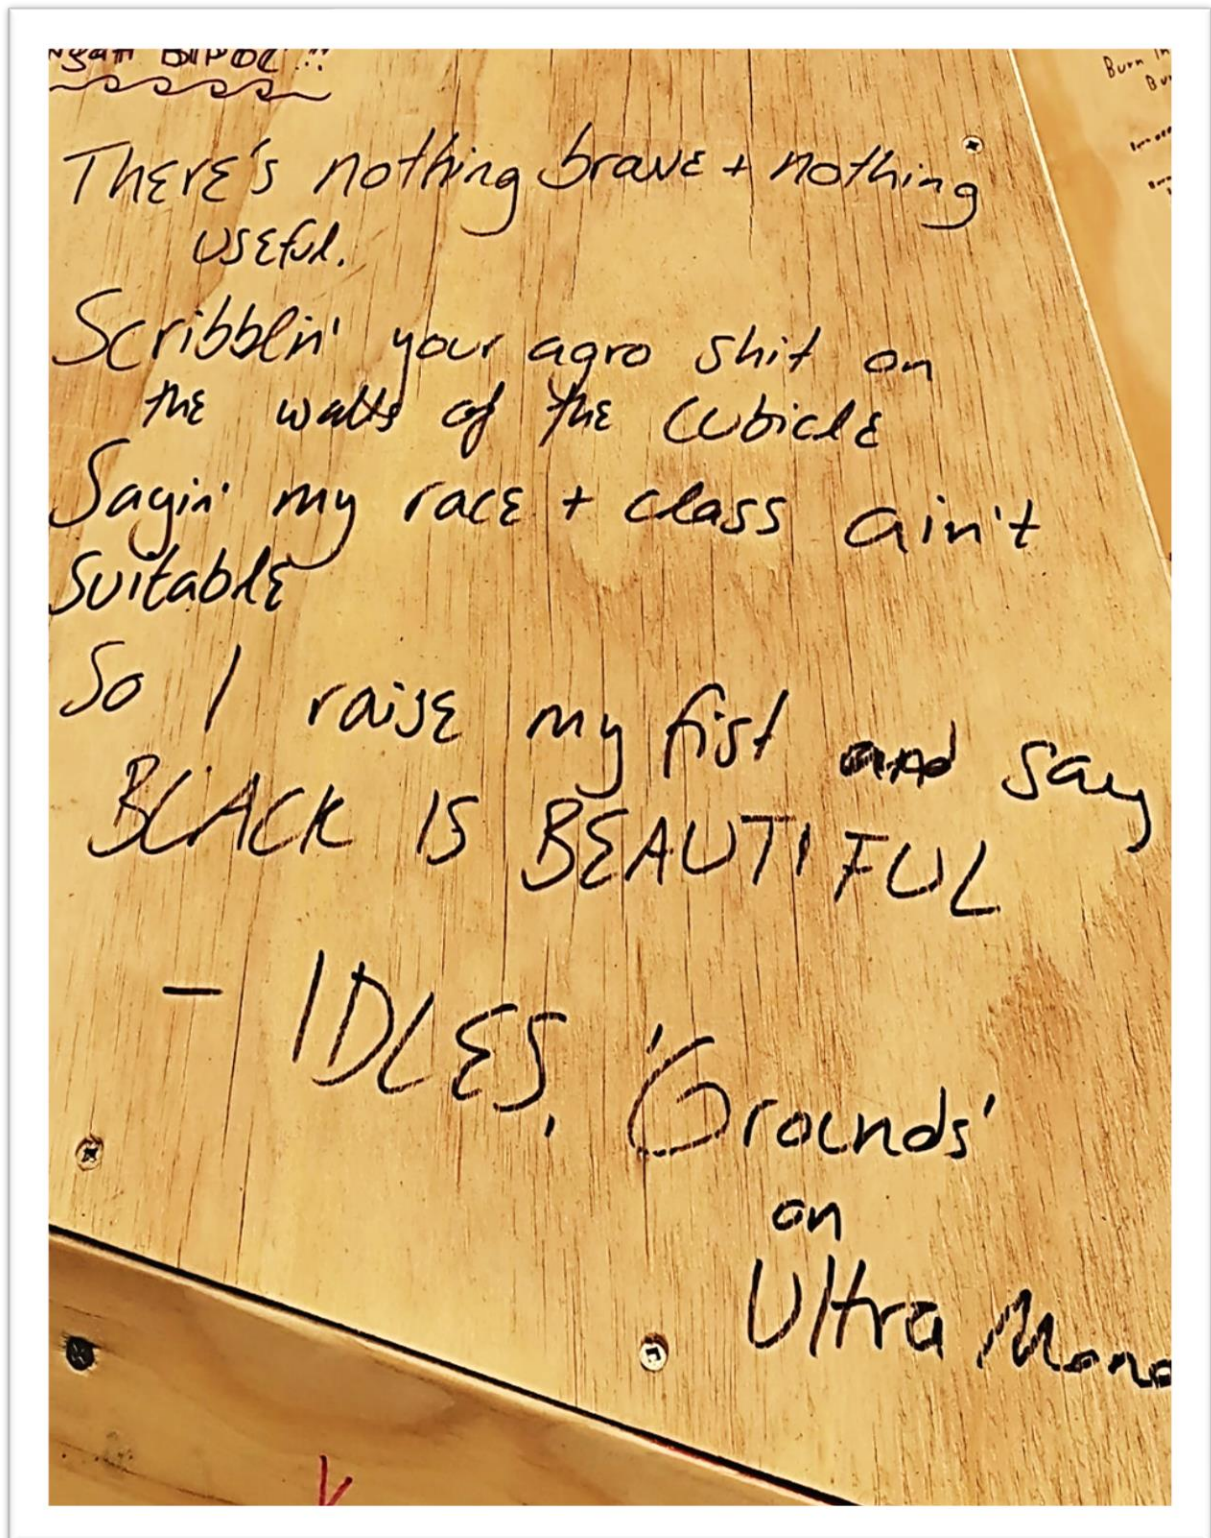 There's nothing brave + nothing
useful.
Scribblin' your agro shit on
the walls of the cubicle
Sayin' my race + class ain't
suitable
So I raise my fist and say
BLACK IS BEAUTIFUL
- IDLES, 'Grounds'
on
Ultra Mono
Burn